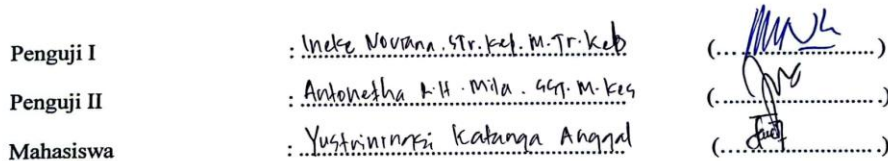 Penguji I : Ineke Noviana.STr.Kep.M.Tr.Keb (....................)
Penguji II : Antonetha R.H.Mila.SST.M.Kes (....................)
Mahasiswa : Katanga Anggal (....................)